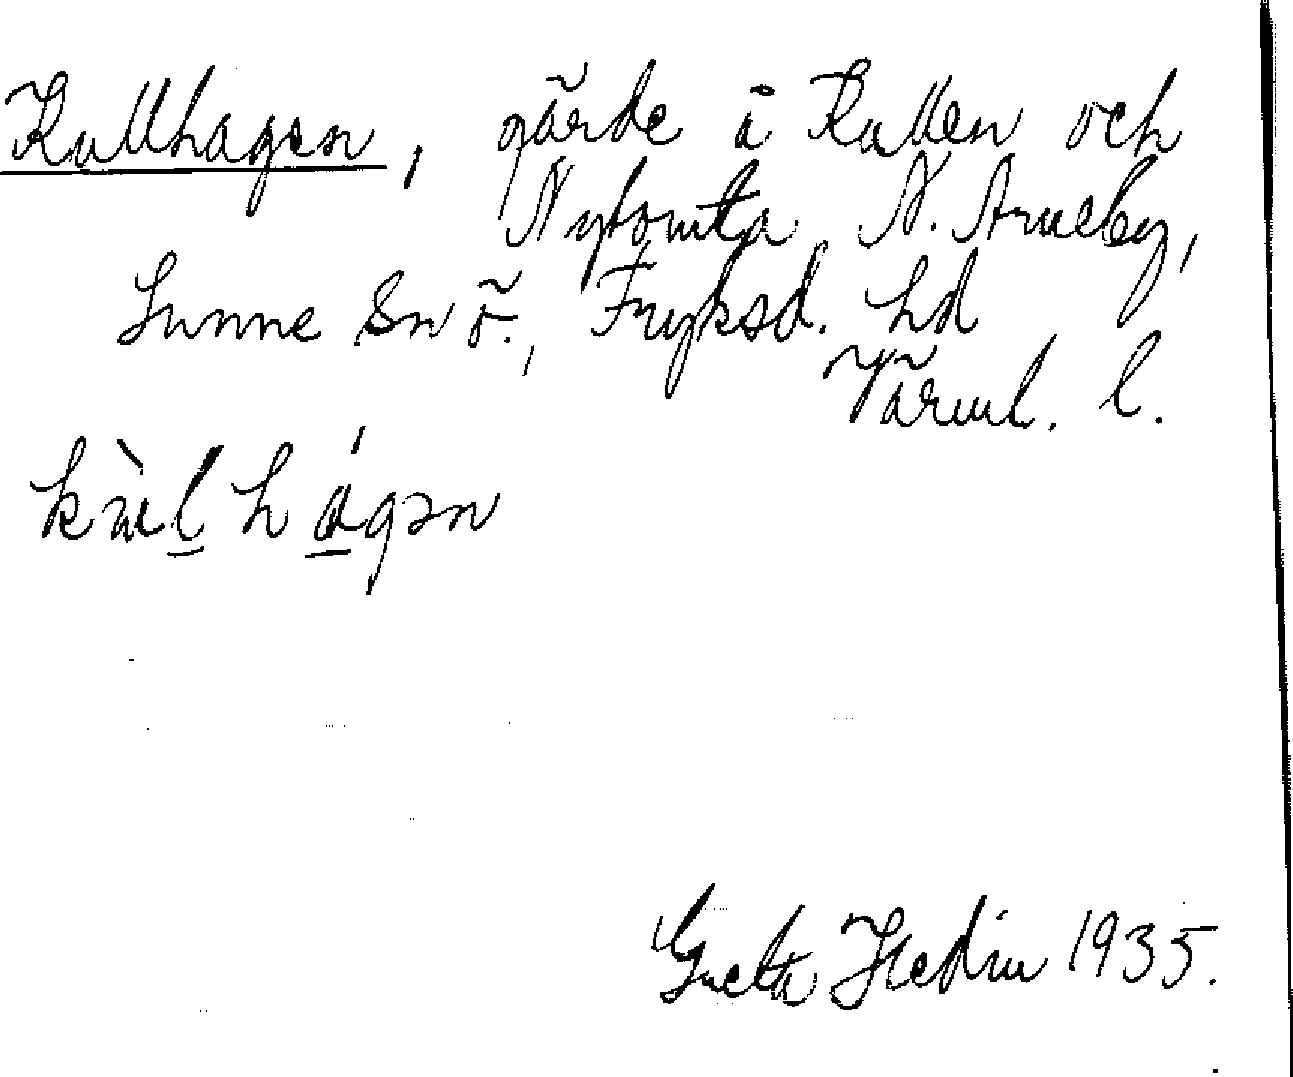 Kullhagen, gärde å Kullen och
Nytomta N. Arneby,
Sunne Sn ö., Fryksd. hd
Värml. l.
kùl hágən
Greta Hedin 1935.